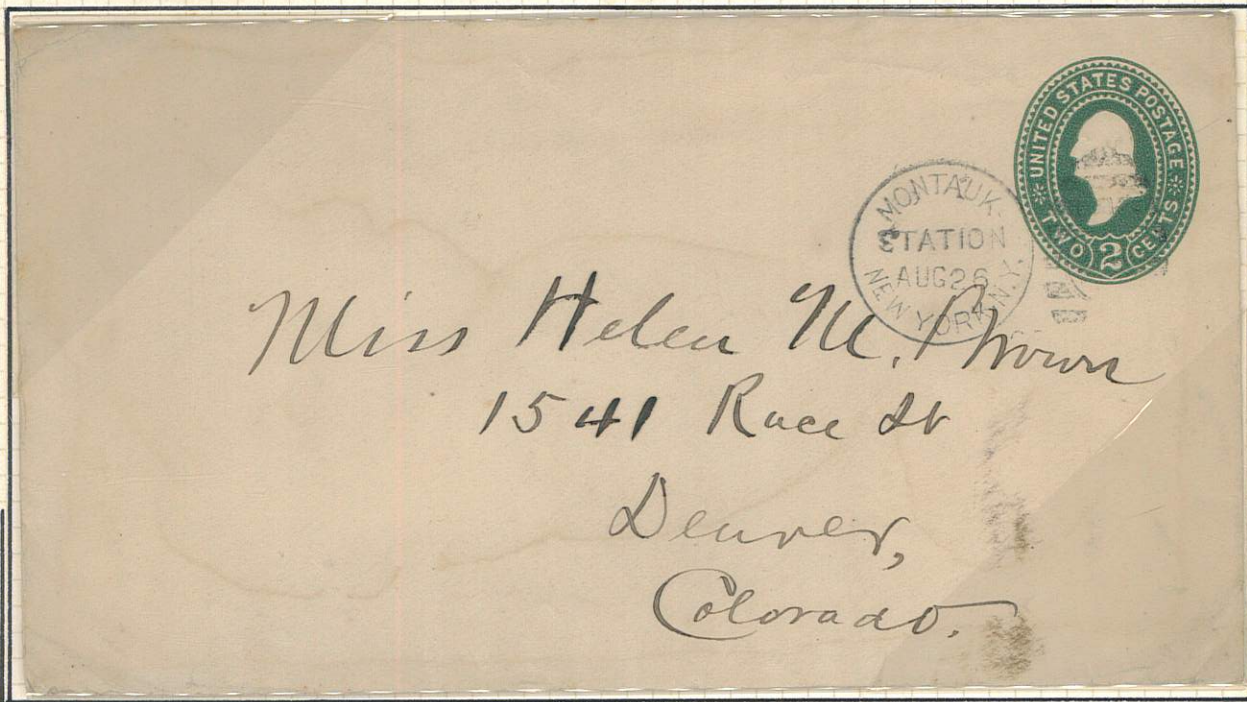 UNITED STATES POSTAGE
TWO 2 CENTS
MONTAUK.
STATION
AUG 26
NEW YORK, N.Y.
Miss Helen M. Brown
1541 Race St
Denver,
Colorado.